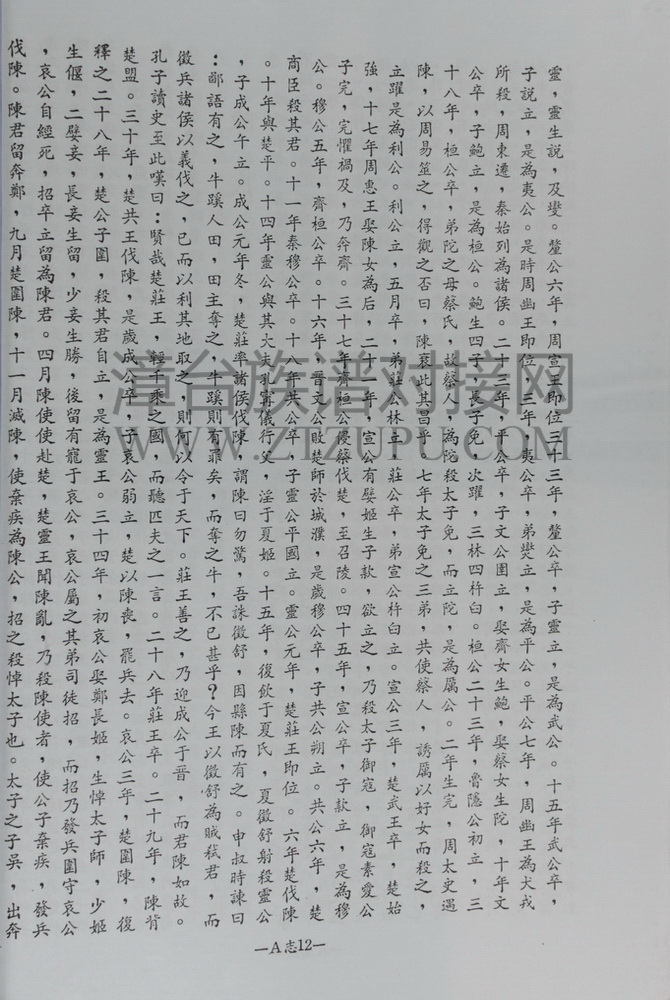 靈，靈生説，及燮。釐公六年，周宣王即位三十三年，釐公卒，子靈立，是為武公。十五年武公卒，
子説立，是為夷公。是時周幽王即位，三年，夷公卒，弟燮立，是為平公。平公七年，周幽王為犬戎
所殺，周東遷，秦始列為諸侯。二十三年，平公卒，子文公圉立，娶齊女生鮑，娶蔡女生陀，十年文
公卒，子鮑立，是為桓公。鮑生四子，長子免，次躍，三林四杵臼。桓公二十三年，魯隱公初立，三
十八年，桓公卒，弟陀之母蔡氏，故蔡人，為陀殺太子免，而立陀，是為厲公。二年生完，周太史過
陳，以周易筮之，得觀之否曰，陳衰此其昌乎，七年太子免之三弟，共使蔡人，誘厲以好女而殺之，
立躍是為利公。利公立，五月卒，弟莊公林立，莊公卒，弟宣公杵臼立。宣公三年，楚武王卒，楚始
強，十七年周惠王娶陳女為后，二十一年，宣公有嬖姬生子款，欲立之，乃殺太子御寇，御寇素愛公
子完，完懼禍及，乃奔齊。三十七年，齊桓公侵蔡伐楚，至召陵。四十五年，宣公卒，子款立，是為穆
公。穆公五年，齊桓公卒。十六年，晋文公敗楚師於城濮，是歲穆公卒，子共公朔立。共公六年，楚
商臣殺其君。十一年秦穆公卒。十八年共公卒，子靈公平國立。靈公元年，楚莊王即位。六年楚伐陳
。十年與楚平。十四年靈公與其大夫孔寗儀行父，淫于夏姬。十五年，復飲于夏氏，夏徵舒射殺靈公
，子成公午立。成公元年冬，楚莊率諸侯伐陳，謂陳曰勿驚，吾誅徵舒，因縣陳而有之。申叔時諫曰
：鄙語有之，牛蹊人田，田主奪之，牛蹊則有罪矣，而奪之牛，不已甚乎？今王以徵舒為賊弒君，而
徵兵諸侯以義伐之，已而以利其地取之，則何以令于天下。莊王善之，乃迎成公于晋，而君陳如故。
孔子讀史至此嘆曰：賢哉楚莊王，輕千乘之國，而聽匹夫之一言。二十八年莊王卒。二十九年，陳背
楚盟。三十年，楚共王伐陳，是歲成公卒，子哀公弱立，楚以陳喪，罷兵去。哀公三年，楚圍陳，復
釋之二十八年，楚公子圍，殺其君自立，是為靈王。三十四年，初哀公娶鄭長姬，生悼太子師，少姬
生偃，二嬖妾，長妾生留，少妾生勝，後留有寵于哀公，哀公屬之其弟司徒招，而招乃發兵圍守哀公
，哀公自經死，招卒立留為陳君。四月陳使使赴楚，楚靈王聞陳亂，乃殺陳使者，使公子棄疾，發兵
伐陳。陳君留奔鄭，九月楚圍陳，十一月滅陳，使棄疾為陳公，招之殺悼太子也。太子之子吳，出奔
—A志12—
漳台族谱对接网
WWW.ZTZUPU.COM